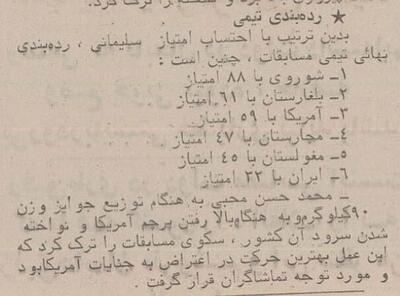 را ترک کرد.
★ رده‌بندی تیمی
بدین ترتیب با احتساب امتیاز سلیمانی ، رده‌بندی
نهائی تیمی مسابقات ، چنین است :
۱ــ شوروی با ۸۸ امتیاز
۲ــ بلغارستان با ۶۱ امتیاز
۳ــ آمریکا با ۵۹ امتیاز
۴ــ مجارستان با ۴۷ امتیاز
۵ــ مغولستان با ۴۵ امتیاز
۶ــ ایران با ۲۲ امتیاز
ــ محمد حسن محبی به هنگام توزیع جوایز وزن
۹۰کیلوگرم‌و به هنگام‌بالا رفتن پرچم آمریکا و نواخته
شدن سرود آن کشور ، سکوی مسابقات را ترک کرد که
این عمل بهترین حرکت در اعتراض به جنایات آمریکابود
و مورد توجه تماشاگران قرار گرفت .